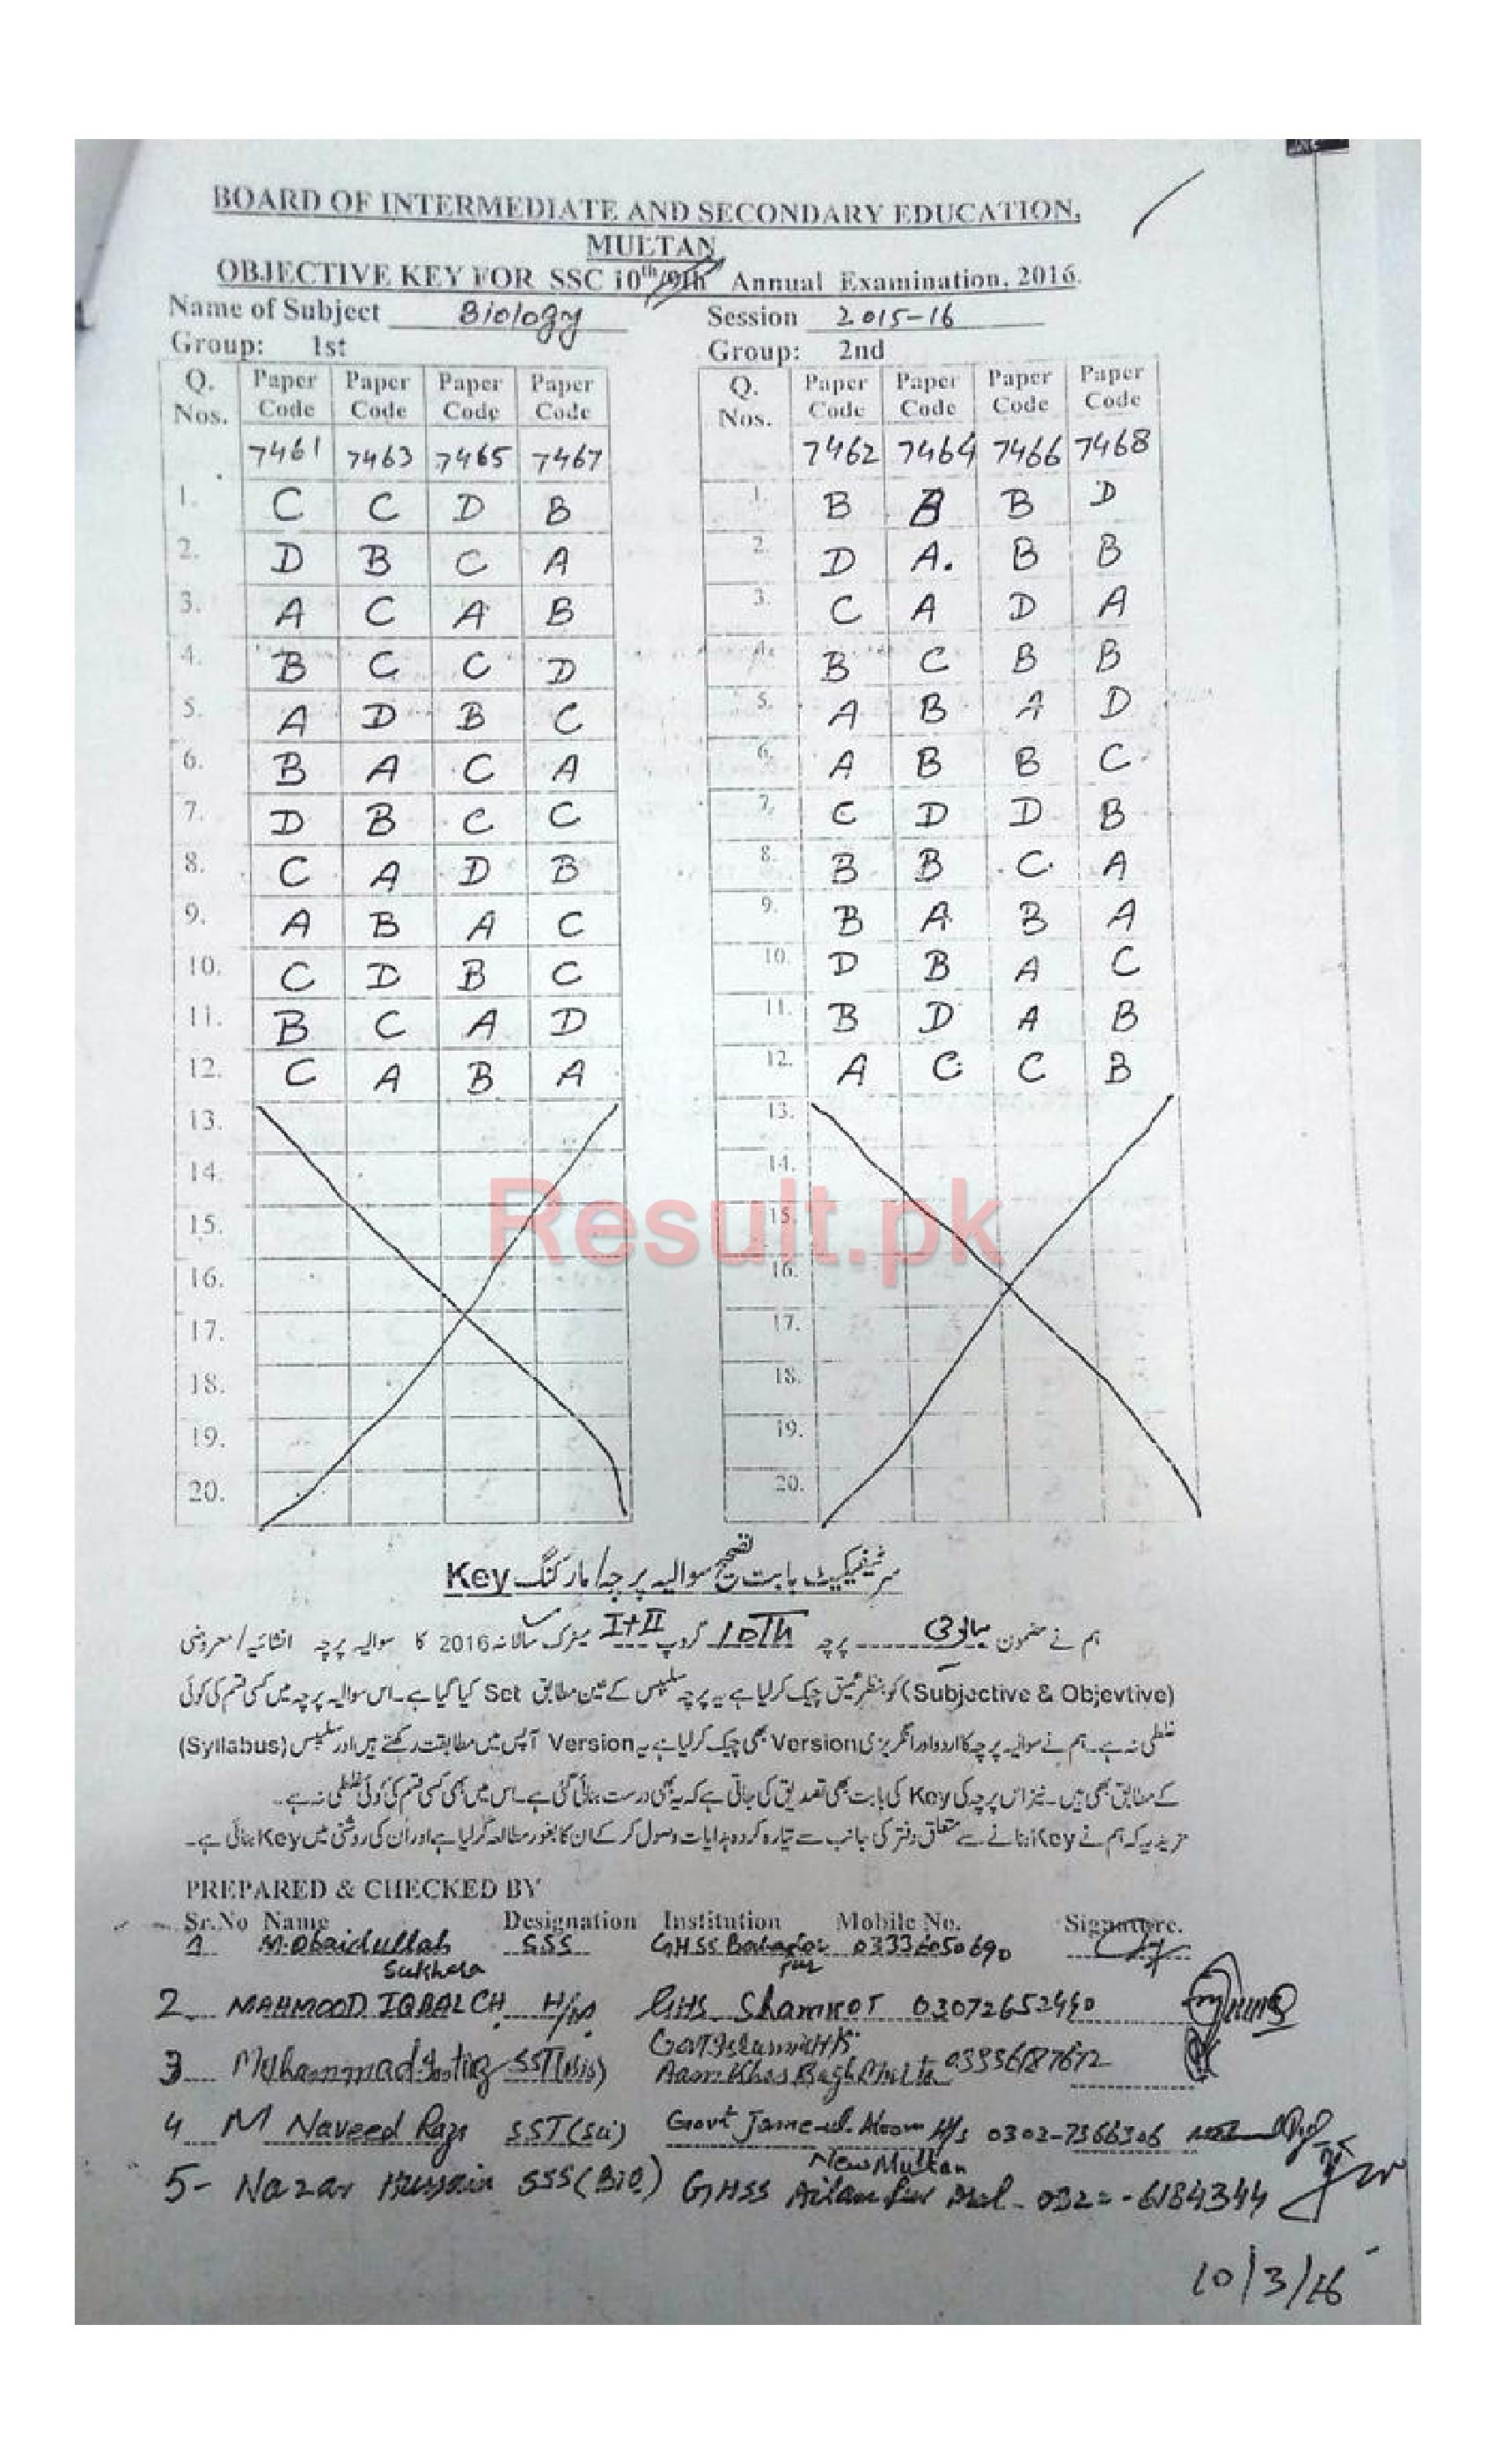 BOARD OF INTERMEDIATE AND SECONDARY EDUCATION,
MULTAN
OBJECTIVE KEY FOR SSC 10th/9th Annual Examination, 2016.
Name of Subject Biology Session 2015-16
Group: 1st Group: 2nd
Q. Nos. Paper Code Paper Code Paper Code Paper Code Q. Nos. Paper Code Paper Code Paper Code Paper Code
7461 7463 7465 7467 7462 7464 7466 7468
1. C C D B 1. B B D
2. D B C A 2. D A. B B
3. A C A B 3. C A D A
4. B C C D 4. B C B B
5. A D B C 5. A B A D
6. B A C A 6. A B B C
7. D B C C 7. C D D B
8. C A D B 8. B B C A
9. A B A C 9. B A B A
10. C D B C 10. D B A C
11. B C A D 11. B D A B
12. C A B A 12. A C C B
13. 13.
14. 14.
15. 15.
16. 16.
17. 17.
18. 18.
19. 19.
20. 20.
Result.pk
سرٹیفیکیٹ بابت تصحیح سوالیہ پرچہ/مارکنگ Key
ہم نے مضمون بیالوجی پرچہ 10Th گروپ I+II میٹرک سالانہ 2016 کا سوالیہ پرچہ انشائیہ/معروضی
(Subjective & Objevtive) کو بنظر عمیق چیک کرلیا ہے یہ پرچہ سلیبس کے عین مطابق Set کیا گیا ہے۔ اس سوالیہ پرچہ میں کسی قسم کی کوئی
غلطی نہ ہے۔ ہم نے سوالیہ پرچہ کا اردو اور انگریزی Version بھی چیک کرلیا ہے یہ Version آپس میں مطابقت رکھتے ہیں اور سلیبس (Syllabus)
کے مطابق بھی ہیں۔ نیز اس پرچہ کی Key کی بابت بھی تصدیق کی جاتی ہے کہ یہ بھی درست بنائی گئی ہے۔ اس میں بھی کسی قسم کی کوئی غلطی نہ ہے۔
مزید یہ کہ ہم نے Key بنانے سے متعلق دفتر کی جانب سے تیار کردہ ہدایات وصول کر کے ان کا بغور مطالعہ کرلیا ہے اور ان کی روشنی میں Key بنائی ہے۔
PREPARED & CHECKED BY
Sr.No Name Designation Institution Mobile No. Signature.
1 M. Obaidullah SSS GHSS 03336050690
Sukhera
2 MAHMOOD IQBAL CH. H/M GHS Shamkot 03072652440
3 Muhammad SST(Bio) Aam Khas Bagh
4 M Naveed SST(Sci) Govt H/s 0302-7366306
New Multan
5- Nazar Hussain SSS(Bio) GHSS -6184344
10/3/16